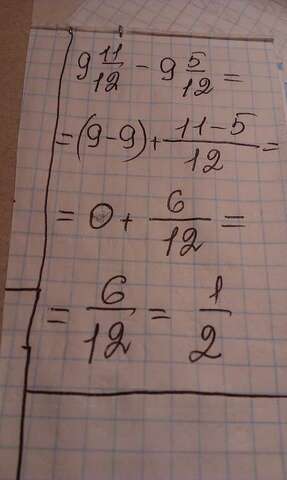 9 11/12 - 9 5/12 =
= (9-9) + 11-5/12 =
= 0 + 6/12 =
= 6/12 = 1/2